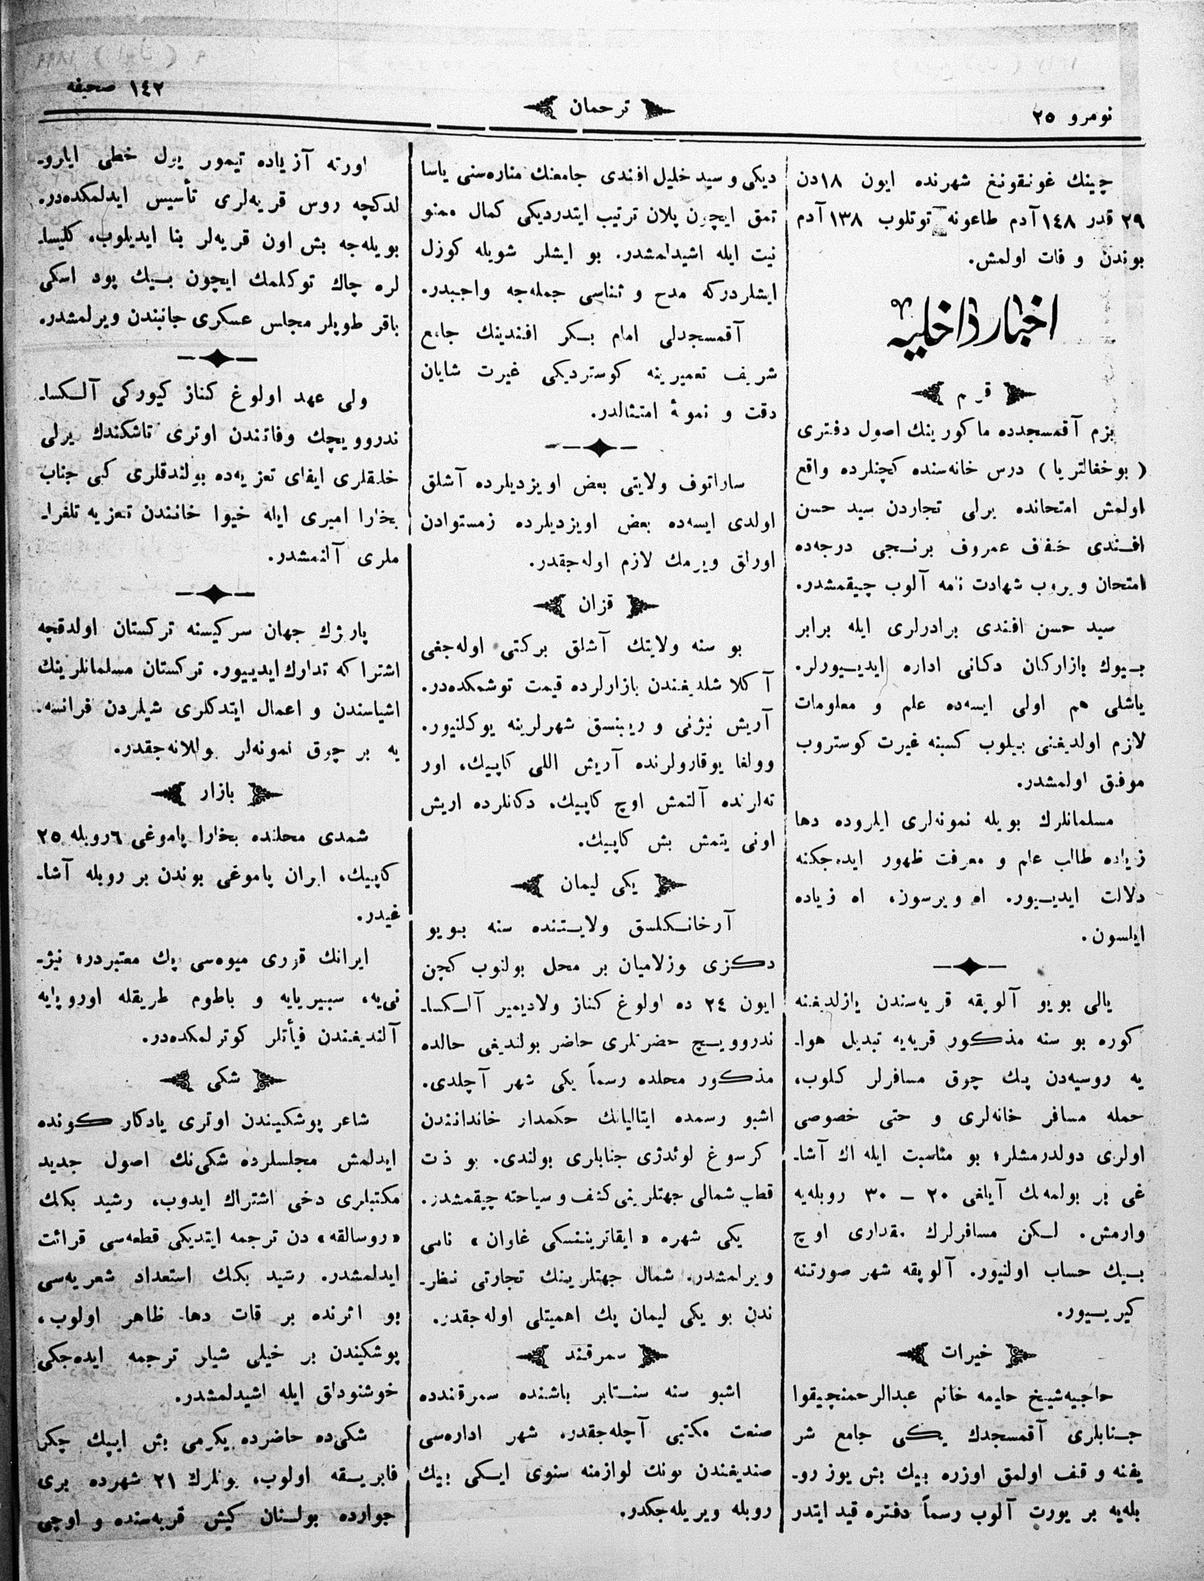 نومرو ٢٥
ترجمان
١٤٢ صحیفه
چینك غونقونغ شهرنده ایون ١٨دن
٢٩ قدر ١٤٨ آدم طاعونه توتلوب ١٣٨ آدم
بوندن وفات اولمش.
اخبار داخلیه
قرم
بزم آقمسجدده ماكورینك اصول دفتری
( بوخغالتریا ) درس خانه‌سنده كچنلرده واقع
اولمش امتحانده یرلی تجاردن سید حسن
افندی خفاف عمروف برنجی درجه‌ده
امتحان ویروب شهادت نامه آلوب چیقمشدر.
سید حسن افندی برادرلری ایله برابر
بیوك بازاركان دكانی اداره ایدیورلر.
یاشلی هم اولی ایسه‌ده علم و معلومات
لازم اولدیغنی بیلوب كسبنه غیرت كوستروب
موفق اولمشدر.
مسلمانلرك بویله نمونه‌لری ایلروده دها
زیاده طالب علم و معرفت ظهور ایده‌جكنه
دلالت ایدیور. اه ویرسون، اه زیاده
ایلسون.
یالی بویو آلوپقه قریه‌سندن یازلدیغنه
كوره بو سنه مذكور قریه‌یه تبدیل هوا-
یه روسیه‌دن پك چوق مسافرلر كلوب،
جمله مسافر خانه‌لری و حتی خصوصی
اولری دولدرمشلر؛ بو مناسبت ایله اك آشا-
غی بر بولمه‌نك آیلغی ٢٠ — ٣٠ روبله‌یه
وارمش. لكن مسافرلرك مقداری اوچ
بیك حساب اولنیور. آلوپقه شهر صورتنه
كیریيور.
خیرات
حاجیه شیخ حلیمه خانم عبدالرحمنچیقوا
جنابلری آقمسجدك یكی جامع شر
یفنه وقف اولمق اوزره بیك بش یوز رو-
بله‌یه بر یورت آلوب رسماً دفتره قید ایتدر
دیكی و سید خلیل افندی جامعنك مناره‌سنی یاسا
تمق ایچون پلان ترتیب ایتدردیكی كمال ممنو
نیت ایله اشیدلمشدر. بو ایشلر شویله كوزل
ایشلردركه مدح و ثناسی جمله‌جه واجبدر.
آقمسجدلی امام بكر افندینك جامع
شریف تعمیرینه كوستردیكی غیرت شایان
دقت و نمونۀ امتثالدر.
ساراتوف ولایتی بعض اویزدیلرده آشلق
اولدی ایسه‌ده بعض اویزدیلرده زمستوادن
اوراق ویرمك لازم اوله‌جقدر.
قزان
بو سنه ولایتك آشلق بركتی اوله‌جغی
آكلاشلدیغندن بازارلرده قیمت توشمكده‌در.
آریش نیژنی و ریبنسق شهرلرینه یوكلنیور.
وولغا یوقارولرنده آریش اللی كاپیك، اور
ته‌لرنده آلتمش اوچ كاپیك، دكانلرده اریش
اونی یتمش بش كاپیك.
یكی لیمان
آرخانكلسق ولایتنده سنه بویو
دكزی بوزلامیان بر محل بولنوب كچن
ایون ٢٤ ده اولوغ كناز ولادیمیر آلكسا-
ندروویچ حضرتلری حاضر بولندیغی حالده
مذكور محلده رسماً یكی شهر آچلدی.
اشبو رسمده ایتالیانك حكمدار خانداننندن
كرسوغ لوئدزی جنابلری بولندی. بو ذت
قطب شمالی جهتلرینی كشف و سیاحته چیقمشدر.
یكی شهره « ایقاترینینسكی غاوان » نامی
ویرلمشدر. شمال جهتلرینك تجارتی نظر-
ندن بو یكی لیمان پك اهمیتلی اوله‌جقدر.
سمرقند
اشبو سنه سنتابر باشنده سمرقندده
صنعت مكتبی آچله‌جقدر. شهر اداره‌سی
صندیغندن بونك لوازمنه سنوی ایكی بیك
روبله ویریله‌جكدر.
اورته آزیاده تیمور یول خطی ایارو-
لدكچه روس قریه‌لری تأسیس ایدلمكده‌در.
بویله‌جه بش اون قریه‌لر بنا ایدیلوب، كلیسا-
لره چاك توكلمك ایچون بیك پود اسكی
باقر طوپلر مجلس عسكری جانبندن ویرلمشدر.
ولی عهد اولوغ كناز كیوركی آلكسا-
ندروویچك وفاتندن اوتری تاشكندك یرلی
خلقلری ایفای تعزیه‌ده بولندقلری كبی جناب
بخارا امیری ایله خیوا خانندن تعزیه تلغرا-
ملری آلنمشدر.
پاریژك جهان سركیسنه تركستان اولدقچه
اشتراكه تدارك ایدییور. تركستان مسلمانلرینك
اشیاسندن و اعمال ایتدكلری شیلردن فرانسه-
یه بر چوق نمونه‌لر یوللانه‌جقدر.
بازار
شمدی محلنده بخارا پاموغی ٦ روبله ٢٥
كاپیك، ایران پاموغی بوندن بر روبله آشا-
غیدر.
ایرانك قوری میوه‌سی پك معتبردر؛ نیژ-
نی‌یه، سیبیریایه و باطوم طریقله اوروپایه
آلندیغندن فیأتلر كوترلمكده‌در.
شكی
شاعر پوشكیندن اوتری یادكار كونده
ایدلمش مجلسلرده شكی‌نك اصول جدید
مكتبلری دخی اشتراك ایدوب، رشید بكك
« روسالقه » دن ترجمه ایتدیكی قطعه‌سی قرائت
ایدلمشدر. رشید بكك استعداد شعریه‌سی
بو اثرنده بر قات دها ظاهر اولوب،
پوشكیندن بر خیلی شیلر ترجمه ایده‌جكی
خوشنودلق ایله اشیدلمشدر.
شكی‌ده حاضرده یكرمی بش ایپك چكر
فابریقه اولوب، بونلرك ٢١ شهرده بری
جوارده بولنان كیش قریه‌سنده و اوچی